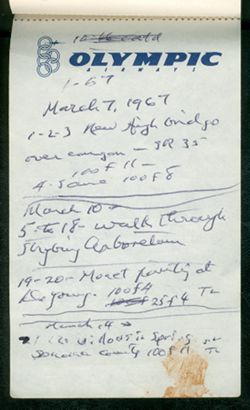 OLYMPIC
AIRWAYS
1-67
March 7, 1967
1-2-3 New High bridge
over canyon - SR 35
100 f 11 -
4. Same 100 f 8
March 10 -
5 to 18 - walk through
Strybing Arboretum
19-20 - Monet painting at
De Young. 100 f 4
25 f 4 TL
March 14 -
in Spring
Sonoma county 100 f 11